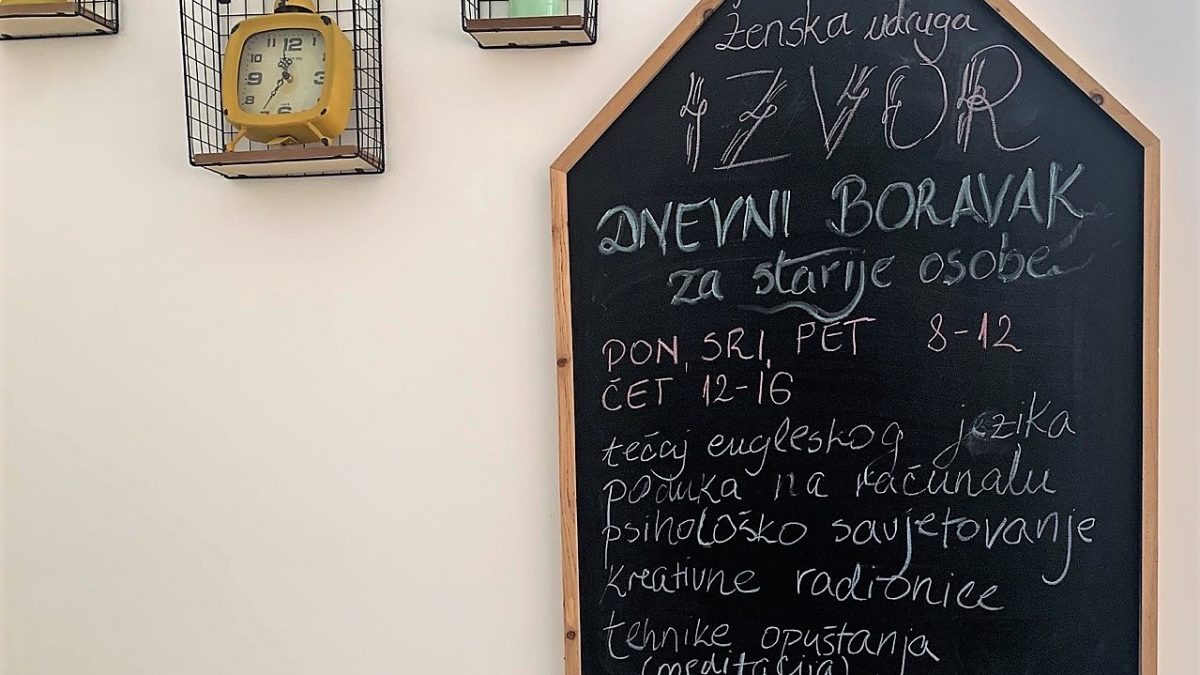 Ženska udruga
IZVOR
DNEVNI BORAVAK
za starije osobe.
PON, SRI, PET 8-12
ČET 12-16
tečaj engleskog jezika
poduka na računalu
psihološko savjetovanje
kreativne radionice
tehnike opuštanja
(meditacija)